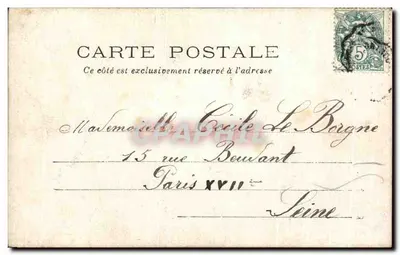 CARTE POSTALE
Ce côté est exclusivement réservé à l'adresse
5
Mademoiselle Cécile Le Borgne
15 rue Beudant
Paris XVIIe
Seine